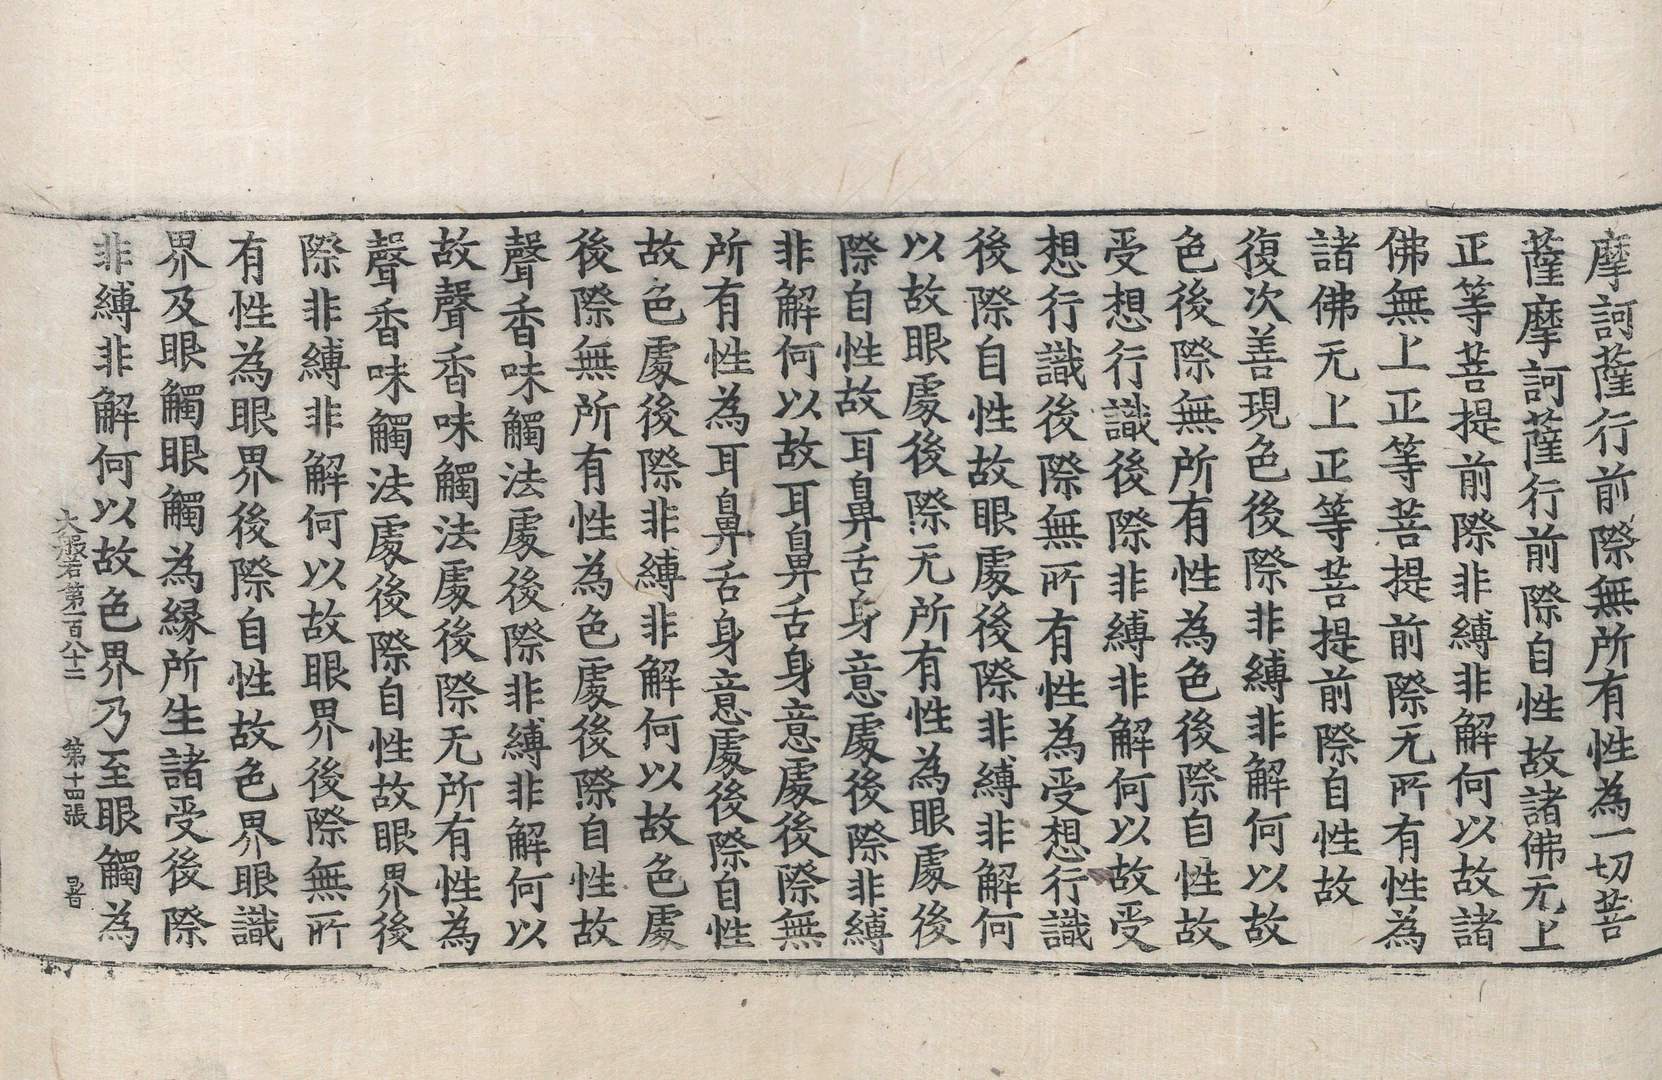 摩訶薩行前際無所有性為一切菩
薩摩訶薩行前際自性故諸佛无上
正等菩提前際非縛非解何以故諸
佛無上正等菩提前際无所有性為
諸佛无上正等菩提前際自性故
復次善現色後際非縛非解何以故
色後際無所有性為色後際自性故
受想行識後際非縛非解何以故受
想行識後際無所有性為受想行識
後際自性故眼處後際非縛非解何
以故眼處後際无所有性為眼處後
際自性故耳鼻舌身意處後際非縛
非解何以故耳鼻舌身意處後際無
所有性為耳鼻舌身意處後際自性
故色處後際非縛非解何以故色處
後際無所有性為色處後際自性故
聲香味觸法處後際非縛非解何以
故聲香味觸法處後際无所有性為
聲香味觸法處後際自性故眼界後
際非縛非解何以故眼界後際無所
有性為眼界後際自性故色界眼識
界及眼觸眼觸為縁所生諸受後際
非縛非解何以故色界乃至眼觸為
大般若第一百八十二 第十四張